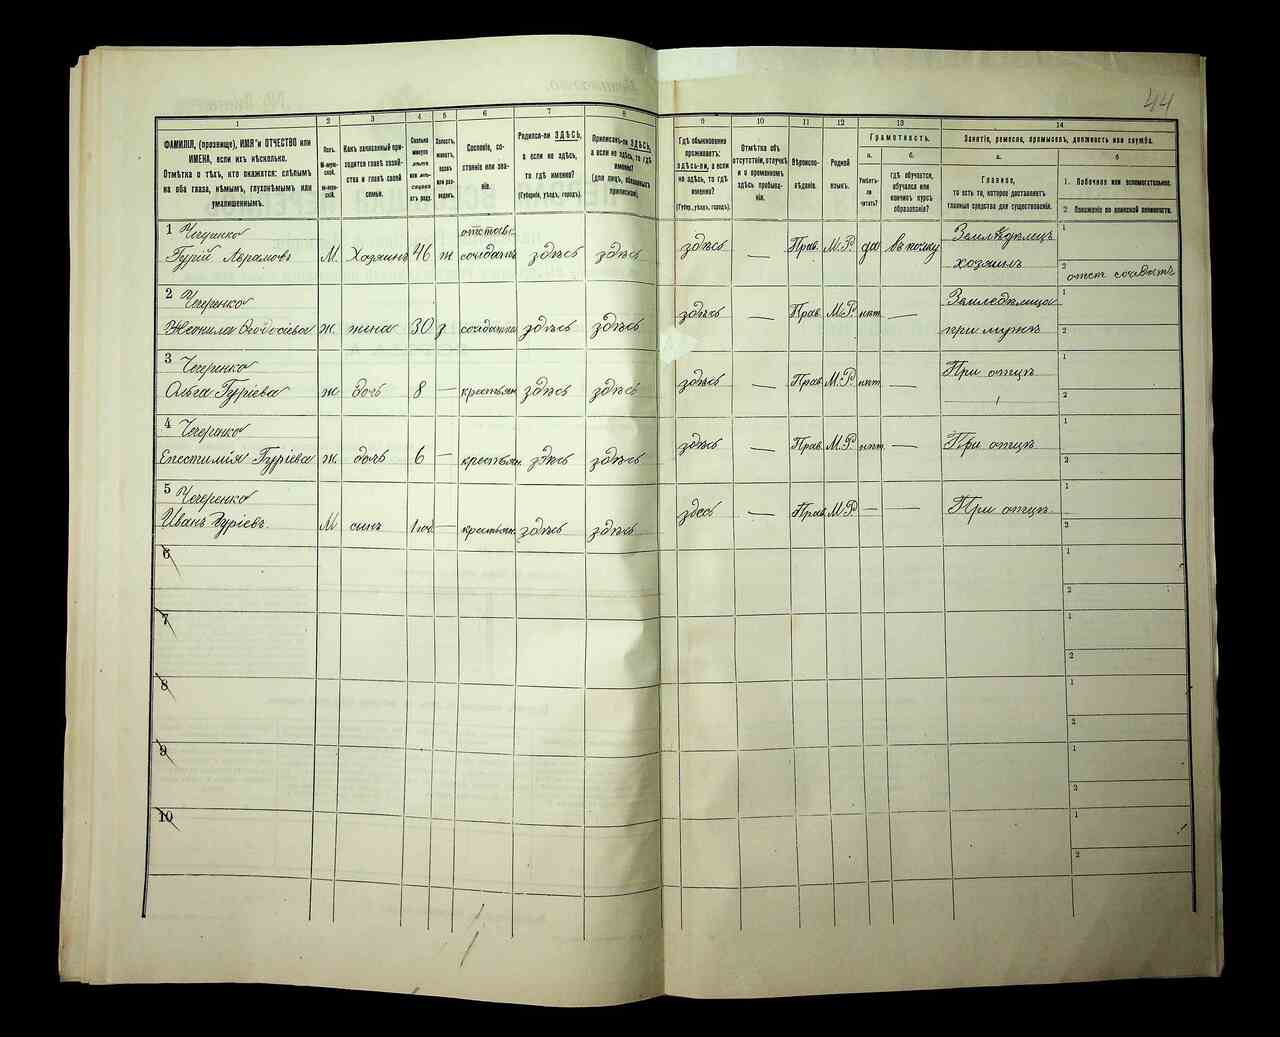 44
1
2
3
4
5
6
7
8
9
10
11
12
13
14
ФАМИЛІЯ, (прозвище), ИМЯ и ОТЧЕСТВО или
ИМЕНА, если ихъ нѣсколько.
Отмѣтка о тѣхъ, кто окажется: слѣпымъ
на оба глаза, нѣмымъ, глухонѣмымъ или
умалишеннымъ.
Полъ.
Какъ записанный при-
ходится главѣ хозяй-
ства и главѣ своей
семьи.
Сколько
минуло
лѣтъ
или мѣ-
сяцевъ
отъ роду.
Холостъ,
женатъ,
вдовъ
или раз-
веденъ.
Сословіе, со-
стояніе или зва-
ніе.
Родился-ли ЗДѢСЬ,
а если не здѣсь,
то гдѣ именно?
(Губернія, уѣздъ, городъ).
Приписанъ-ли ЗДѢСЬ,
а если не здѣсь, то гдѣ
именно?
(для лицъ, обязанныхъ
припискою).
Гдѣ обыкновенно
проживаетъ:
ЗДѢСЬ-ли, а если
не здѣсь, то гдѣ
именно?
(Губер., уѣздъ, городъ).
Отмѣтка объ
отсутствіи, отлучкѣ
и о временномъ
здѣсь пребыва-
ніи.
Вѣроиспо-
вѣданіе.
Родной
языкъ.
Грамотность.
а.
Умѣетъ-
ли
читать?
б.
гдѣ обучается,
обучался или
кончилъ курсъ
образованія?
Занятіе, ремесло, промыселъ, должность или служба.
а.
Главное,
то есть то, которое доставляетъ
главныя средства для существованія.
б
1. Побочное или вспомогательное.
2. Положеніе по воинской повинности.
1 Чечренко
Гурій Аврамовъ М. Хозяинъ 46 ж отставн. солдатъ здѣсь здѣсь здѣсь — Прав. М.Р. да въ полку Земледѣлецъ хозяинъ
1
2 отст солдатъ
2 Чечеренко
Неонила Ѳеодосіева ж. жена 30 з солдатка здѣсь здѣсь здѣсь — Прав. М.Р. нѣт. — Земледѣлица при мужѣ
1
2
3 Чечеренко
Ольга Гуріева ж. дочь 8 — крестьян здѣсь здѣсь здѣсь — Прав. М.Р. нѣт. — При отцѣ
1
2
4 Чечеренко
Епистимія Гуріева ж дочь 6 — крестьян. здѣсь здѣсь здѣсь — Прав. М.Р. нѣт. — При отцѣ
1
2
5 Чечеренко
Иванъ Гуріевъ. М. сынъ — крестьян. здѣсь здѣсь здесь — Прав. М.Р. — — При отцѣ
1
2
6
1
2
7
1
2
8
1
2
9
1
2
10
1
2